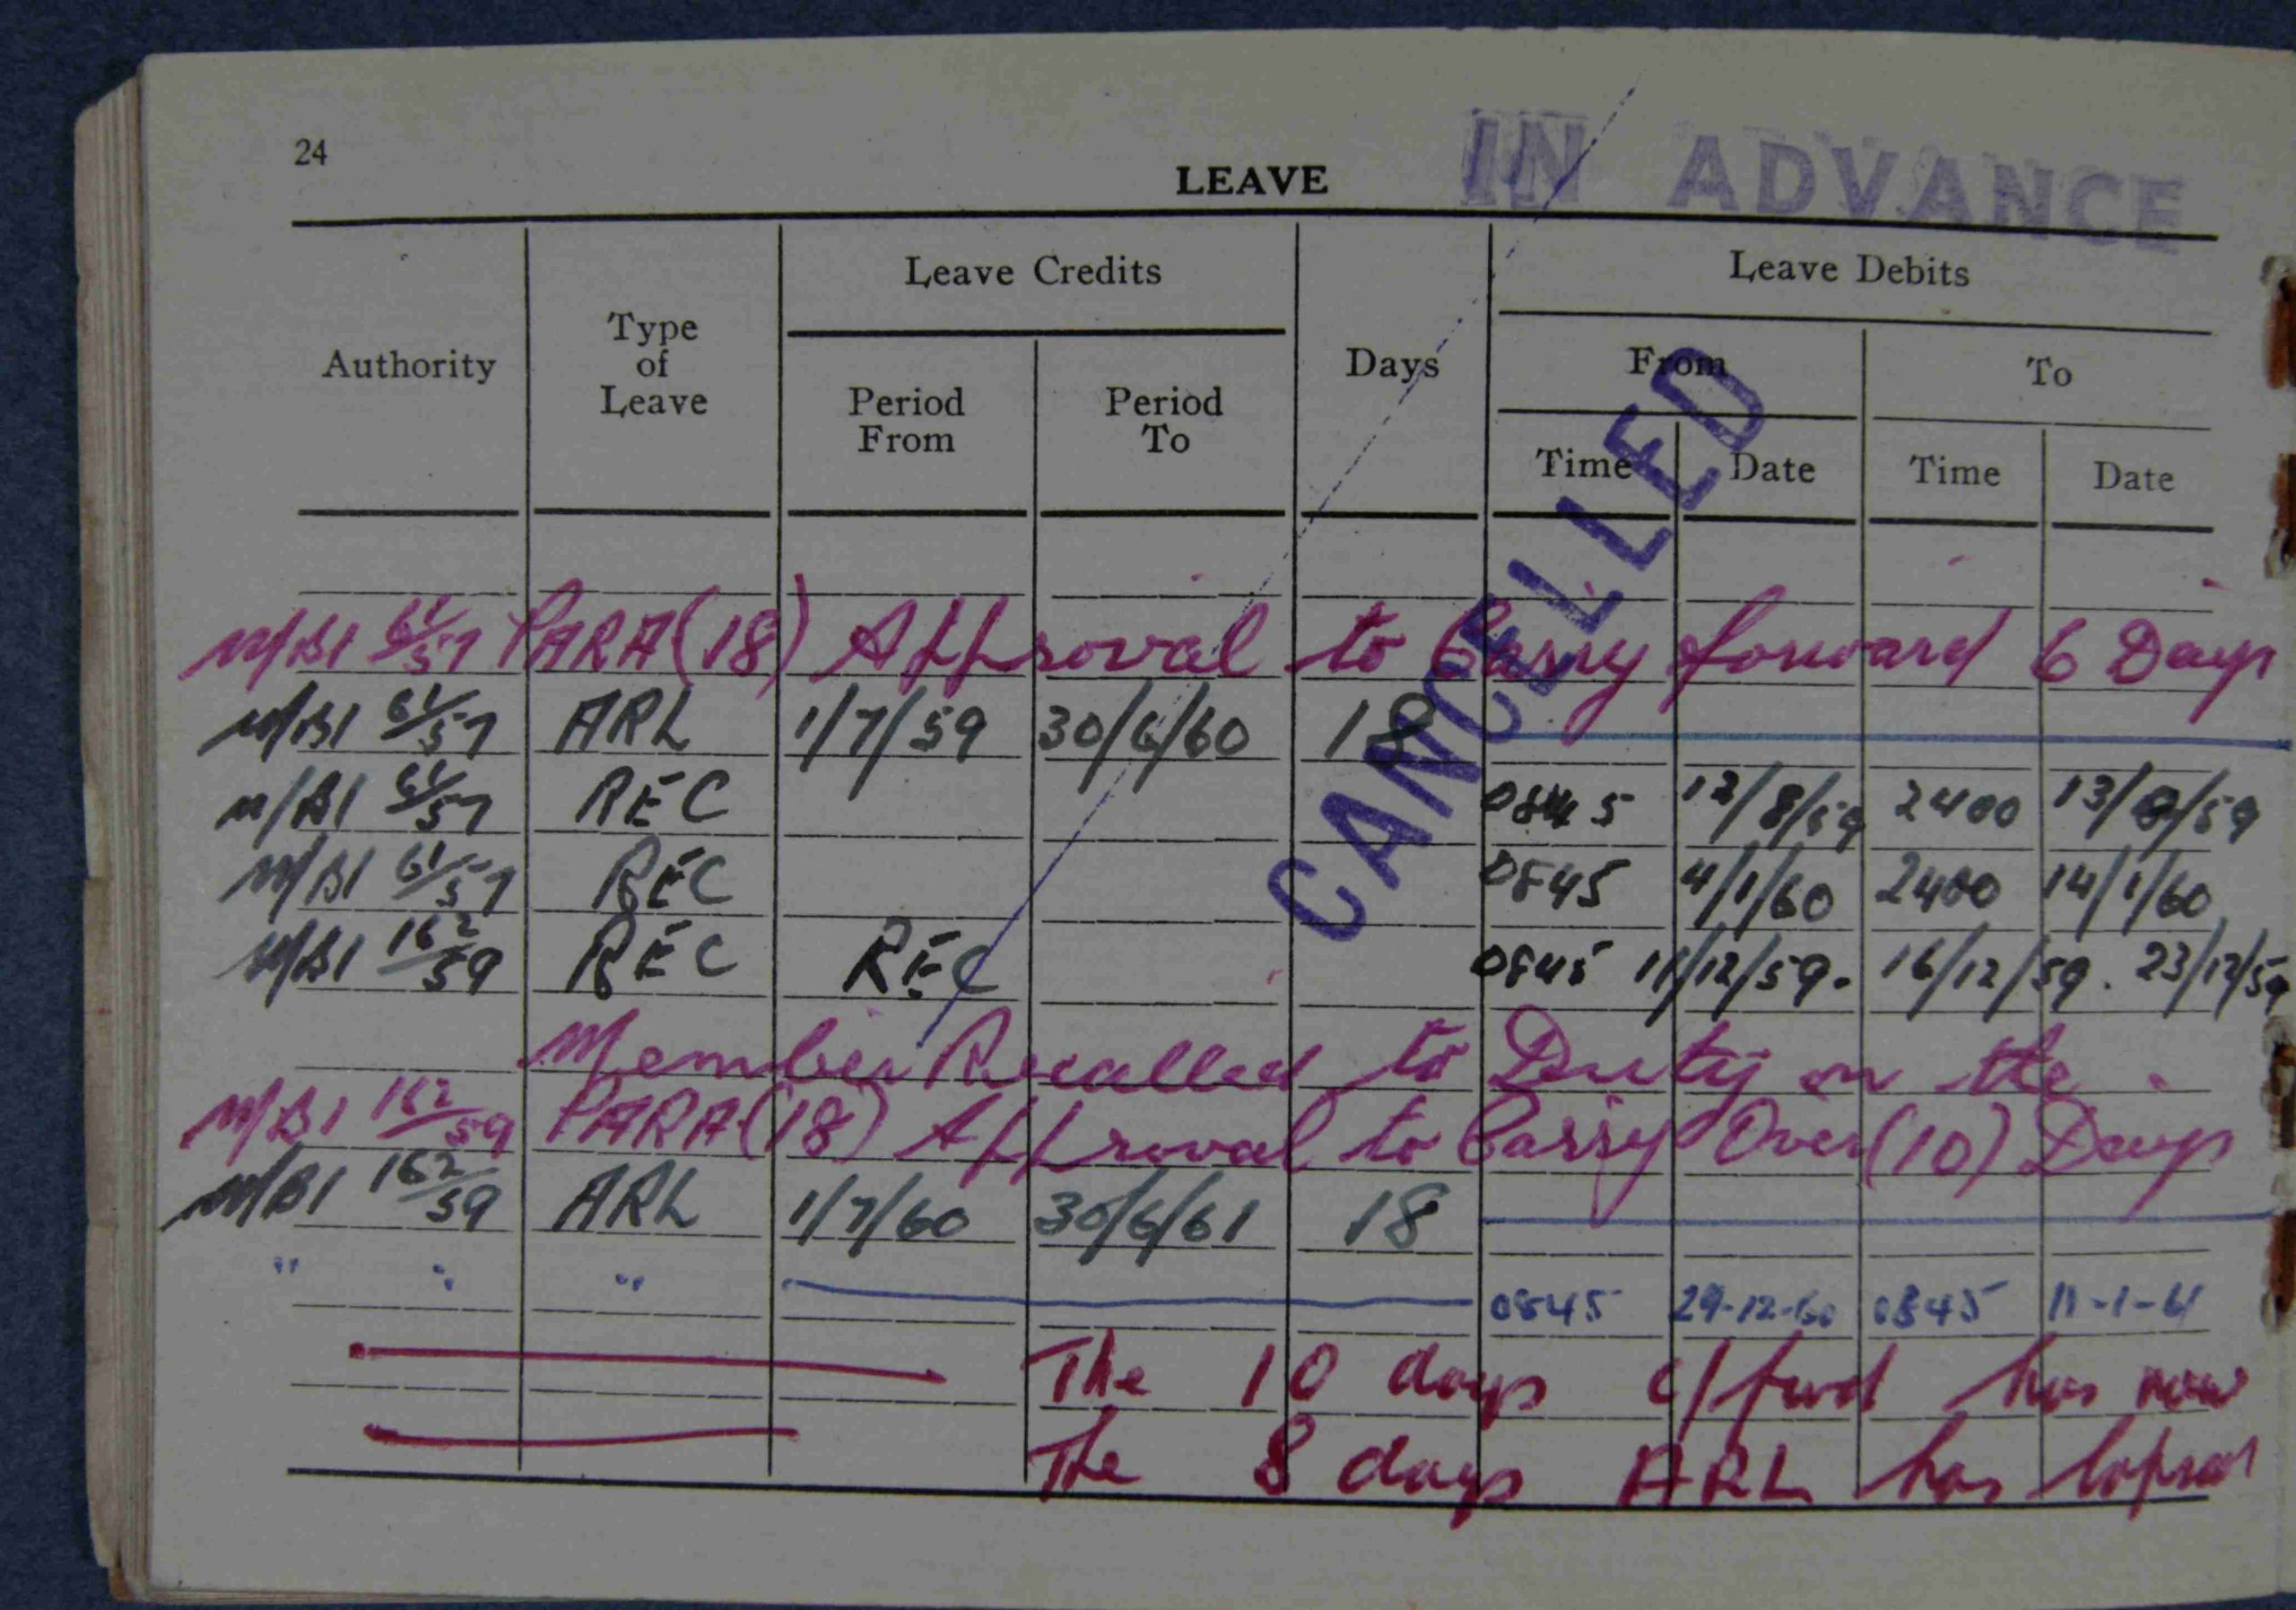 24
LEAVE IN ADVANCE
Authority Type of Leave Leave Credits Days Leave Debits
Period From Period To From To
Time Date Time Date
CANCELLED
M/B1 61/57 PARA(18) Approval to Carry forward 6 Days
M/B1 61/57 ARL 1/7/59 30/6/60 18
M/B1 61/57 REC 0845 12/8/59 2400 13/8/59
M/B1 61/57 REC 0845 4/1/60 2400 14/1/60
M/B1 162/59 REC REC 0845 11/12/59. 16/12/59. 23/12/59
Member Recalled to Duty on the
M/B1 162/59 PARA(18) Approval to Carry Over (10) Days
M/B1 162/59 ARL 1/7/60 30/6/61 18
" " " 0845 29-12-60 0845 11-1-61
The 10 days c/fwd has now
The 8 days ARL has lapsed